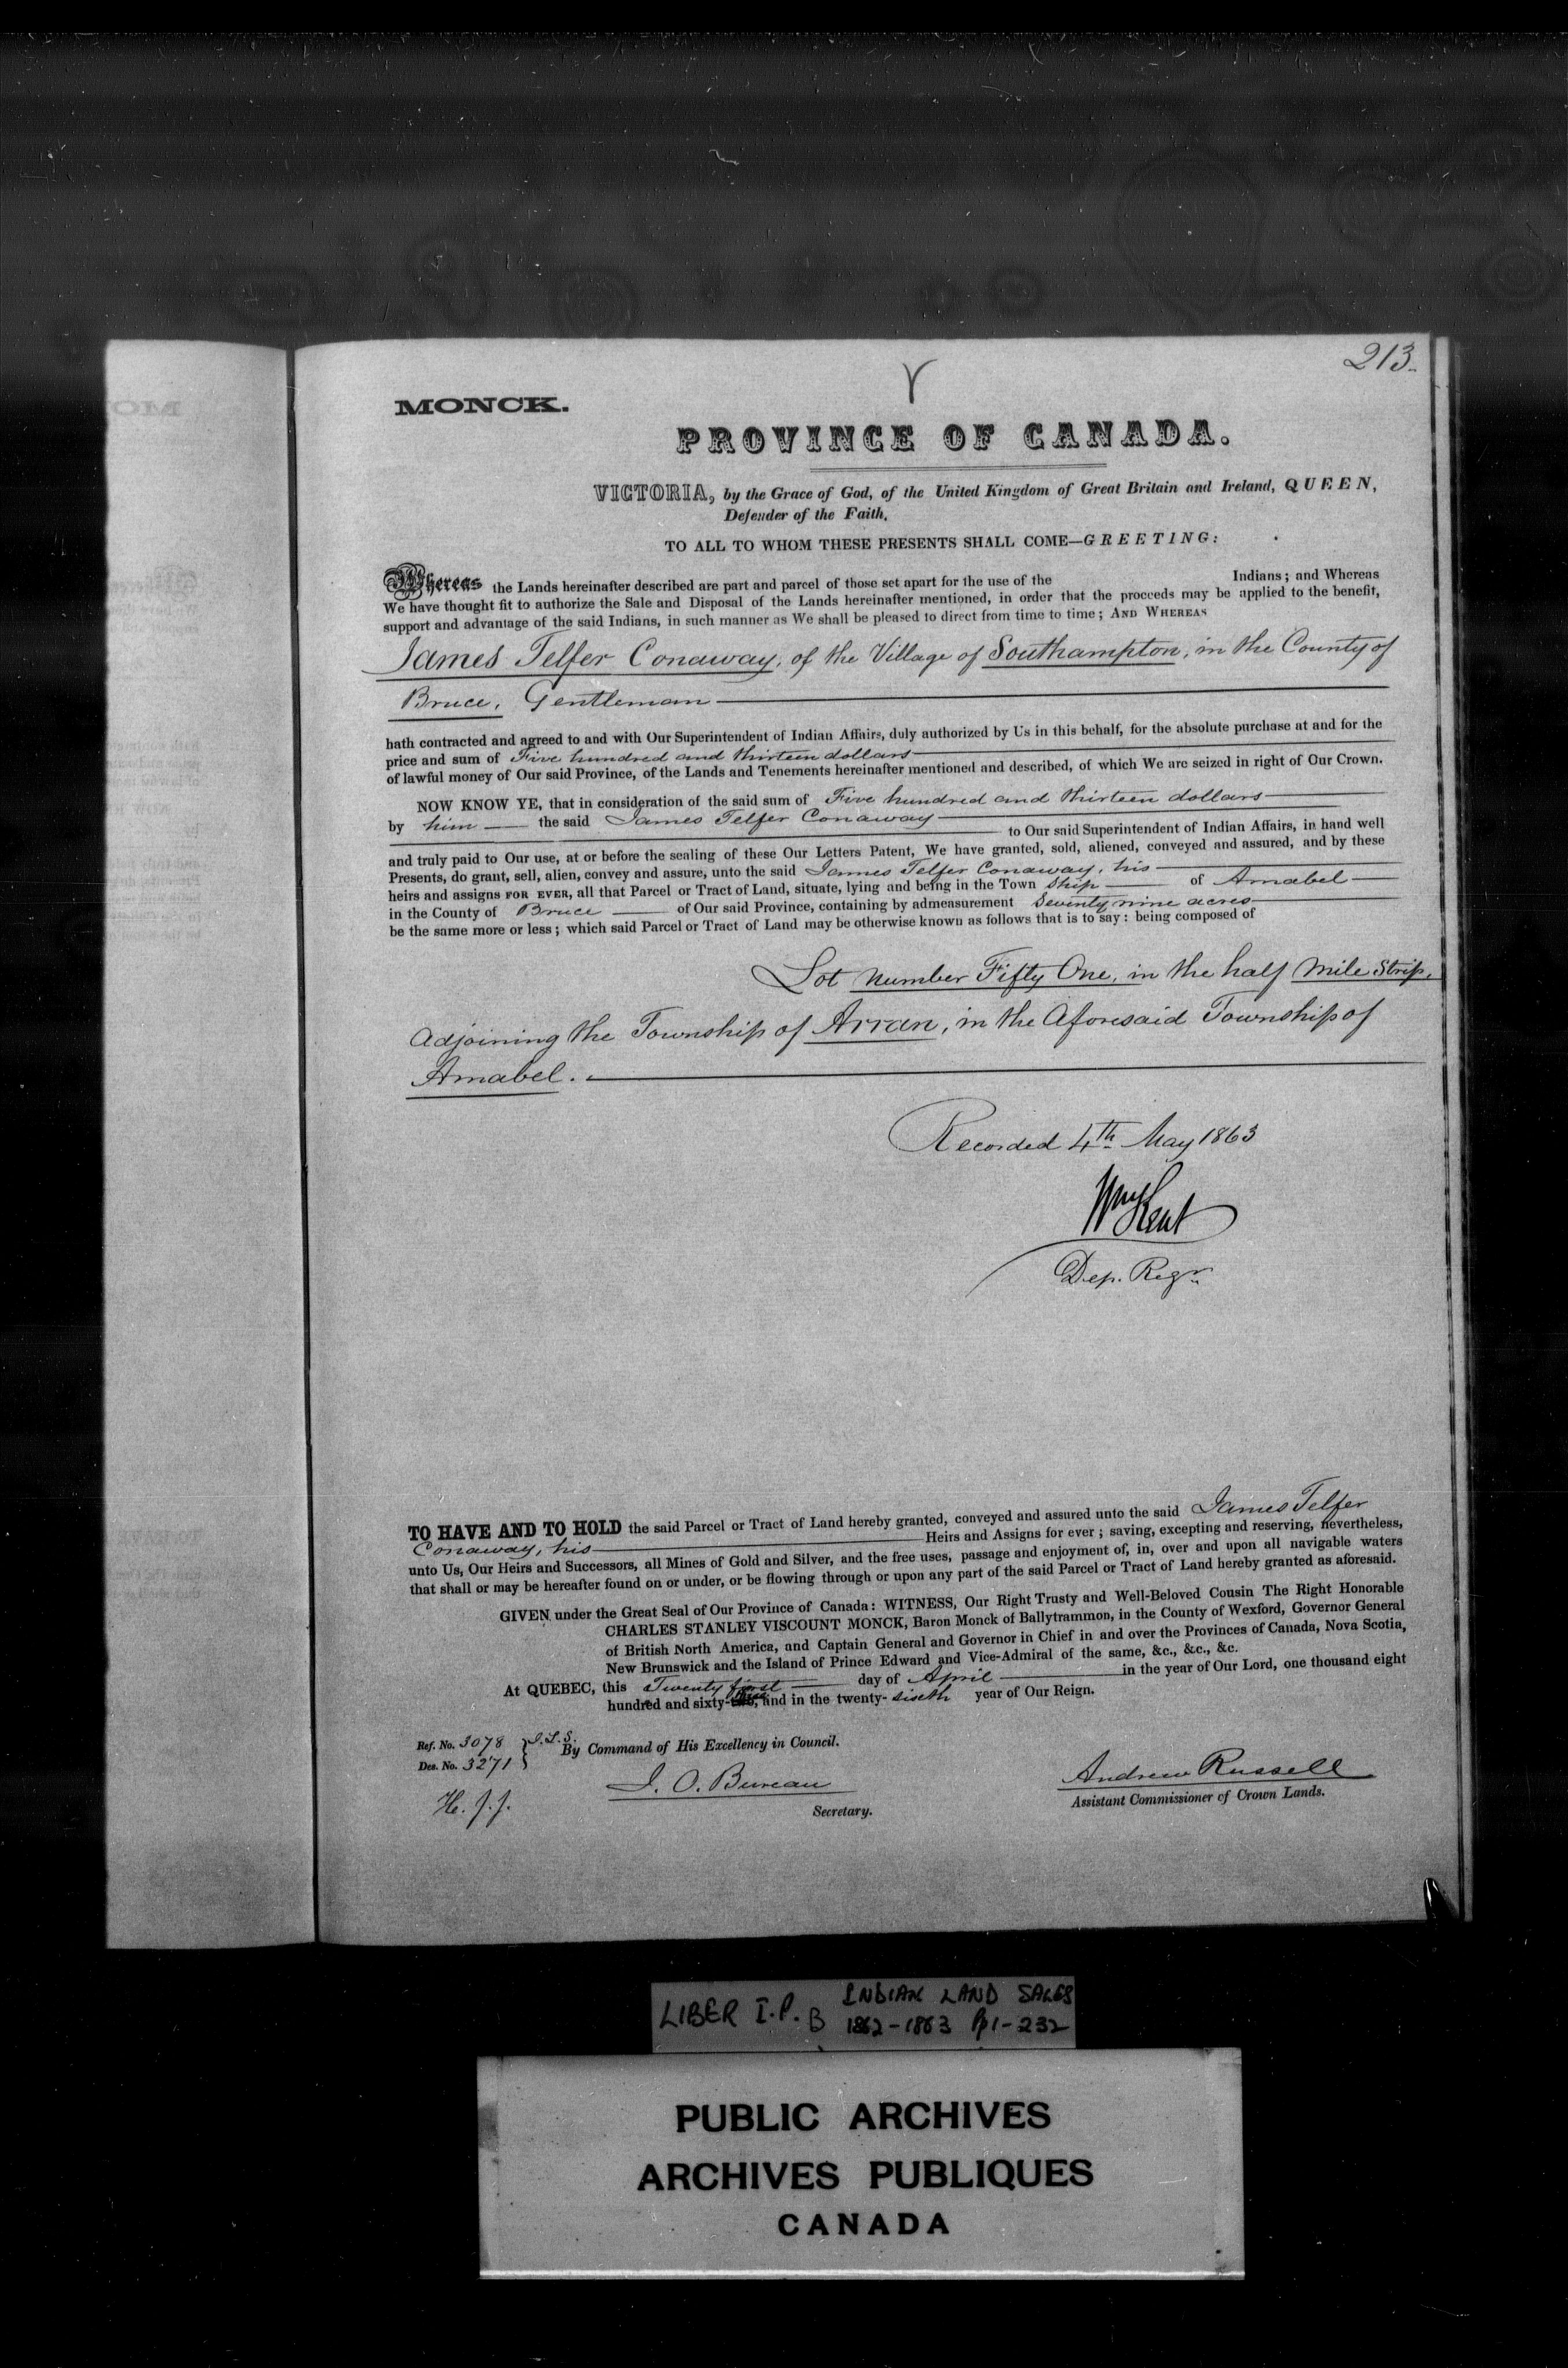 213.
MONCK.
PROVINCE OF CANADA.
VICTORIA, by the Grace of God, of the United Kingdom of Great Britain and Ireland, QUEEN,
Defender of the Faith,
TO ALL TO WHOM THESE PRESENTS SHALL COME—GREETING:
Whereas the Lands hereinafter described are part and parcel of those set apart for the use of the Indians; and Whereas
We have thought fit to authorize the Sale and Disposal of the Lands hereinafter mentioned, in order that the proceeds may be applied to the benefit,
support and advantage of the said Indians, in such manner as We shall be pleased to direct from time to time; AND WHEREAS
James Telfer Conaway, of the Village of Southampton, in the County of
Bruce, Gentleman
hath contracted and agreed to and with Our Superintendent of Indian Affairs, duly authorized by Us in this behalf, for the absolute purchase at and for the
price and sum of Five hundred and thirteen dollars
of lawful money of Our said Province, of the Lands and Tenements hereinafter mentioned and described, of which We are seized in right of Our Crown.
NOW KNOW YE, that in consideration of the said sum of Five hundred and thirteen dollars
by him the said James Telfer Conaway to Our said Superintendent of Indian Affairs, in hand well
and truly paid to Our use, at or before the sealing of these Our Letters Patent, We have granted, sold, aliened, conveyed and assured, and by these
Presents, do grant, sell, alien, convey and assure, unto the said James Telfer Conaway, his
heirs and assigns FOR EVER, all that Parcel or Tract of Land, situate, lying and being in the Town ship of Amabel
in the County of Bruce of Our said Province, containing by admeasurement Seventy nine acres
be the same more or less; which said Parcel or Tract of Land may be otherwise known as follows that is to say: being composed of
Lot number Fifty One, in the half Mile Strip,
adjoining the Township of Arran, in the Aforesaid Township of
Amabel.
Recorded 4th May 1863
Wm Kent
Dep. Regr.
TO HAVE AND TO HOLD the said Parcel or Tract of Land hereby granted, conveyed and assured unto the said James Telfer
Conaway, his Heirs and Assigns for ever; saving, excepting and reserving, nevertheless,
unto Us, Our Heirs and Successors, all Mines of Gold and Silver, and the free uses, passage and enjoyment of, in, over and upon all navigable waters
that shall or may be hereafter found on or under, or be flowing through or upon any part of the said Parcel or Tract of Land hereby granted as aforesaid.
GIVEN under the Great Seal of Our Province of Canada: WITNESS, Our Right Trusty and Well-Beloved Cousin The Right Honorable
CHARLES STANLEY VISCOUNT MONCK, Baron Monck of Ballytrammon, in the County of Wexford, Governor General
of British North America, and Captain General and Governor in Chief in and over the Provinces of Canada, Nova Scotia,
New Brunswick and the Island of Prince Edward and Vice-Admiral of the same, &c., &c., &c.
At QUEBEC, this Twenty first day of April in the year of Our Lord, one thousand eight
hundred and sixty-three, and in the twenty-sixth year of Our Reign.
Ref. No. 3078
Des. No. 3271
By Command of His Excellency in Council.
H. J. J.
J. O. Bureau
Secretary.
Andrew Russell
Assistant Commissioner of Crown Lands.
LIBER I.P. B INDIAN LAND SALES
1862-1863 Pp 1-232
PUBLIC ARCHIVES
ARCHIVES PUBLIQUES
CANADA